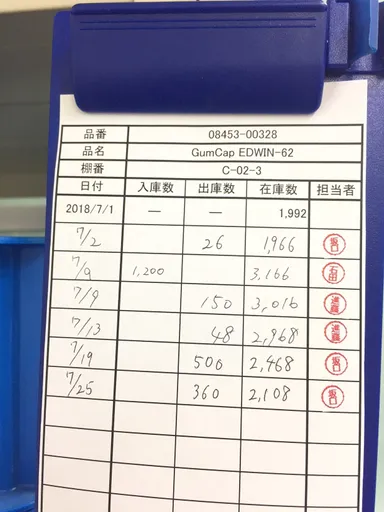 品番 08453-00328
品名 GumCap EDWIN-62
棚番 C-02-3
日付 入庫数 出庫数 在庫数 担当者
2018/7/1 — — 1,992
7/2 26 1,966 坂口
7/9 1,200 3,166 石田
7/9 150 3,016 遠藤
7/13 48 2,968 遠藤
7/19 500 2,468 坂口
7/25 360 2,108 坂口